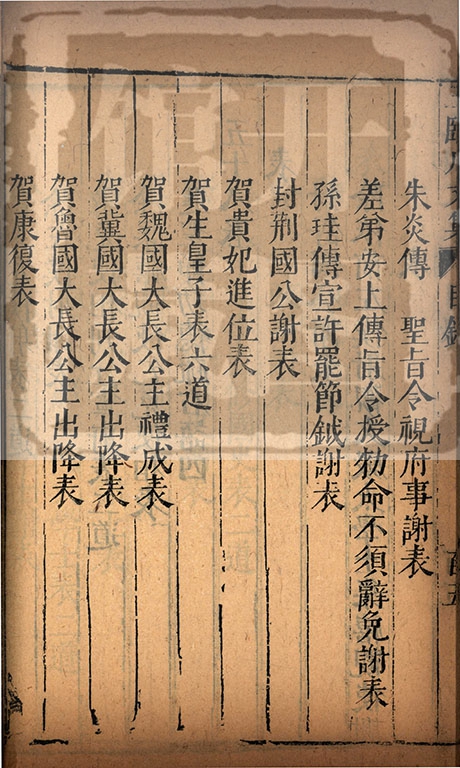 朱炎傳　聖旨令視府事謝表
差弟安上傳旨令授勑命不須辭免謝表
孫珪傳宣許罷節鉞謝表
封荊國公謝表
賀貴妃進位表
賀生皇子表六道
賀魏國大長公主禮成表
賀冀國大長公主出降表
賀魯國大長公主出降表
賀康復表